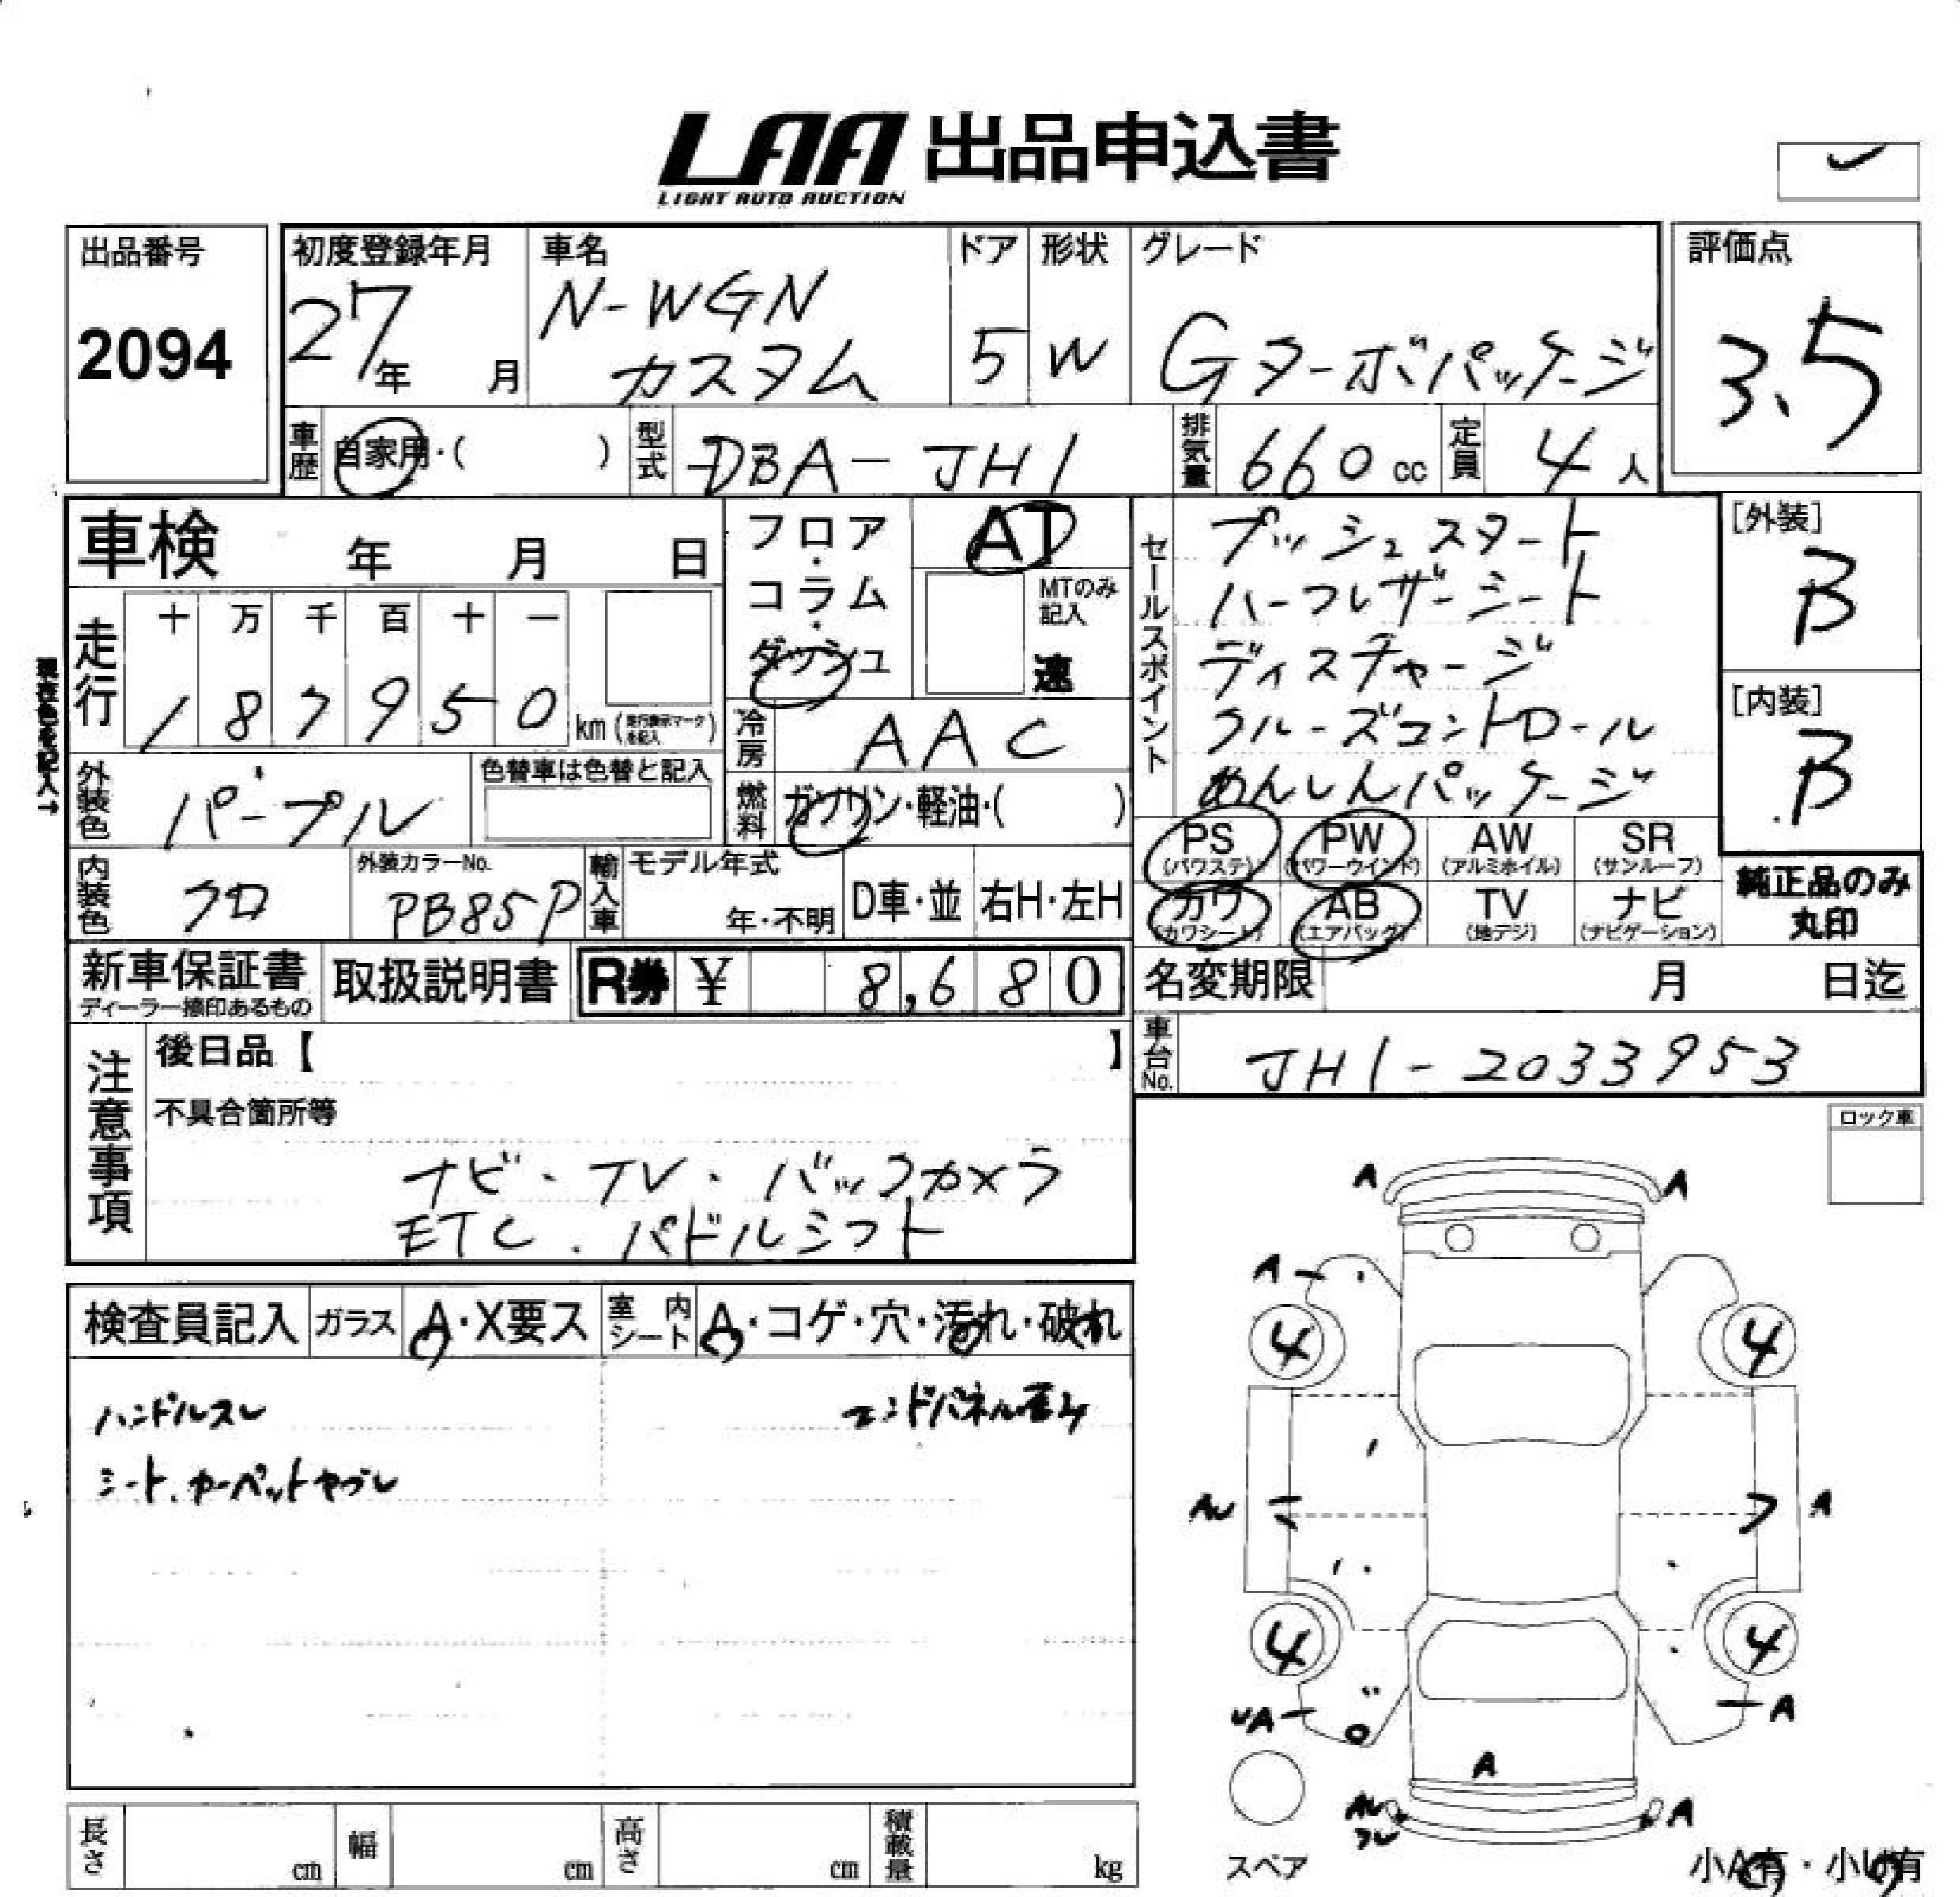 LAA 出品申込書
LIGHT AUTO AUCTION
出品番号
2094
初度登録年月
27年 月
車名
N-WGN
カスタム
ドア
5
形状
W
グレード
Gターボパッケージ
評価点
3.5
車歴 自家用・( )
型式 DBA-JH1
排気量 660 cc
定員 4 人
車検 年 月 日
フロア・コラム・ダッシュ
AT
MTのみ記入
速
セールスポイント
プッシュスタート
ハーフレザーシート
ディスチャージ
クルーズコントロール
あんしんパッケージ
[外装]
B
[内装]
B
現在色を記入→
走行
十 万 千 百 十 一
1 8 7 9 5 0 km (走行表示マークを記入)
冷房 AAC
外装色 パープル
色替車は色替と記入
燃料 ガソリン・軽油・( )
PS (パワステ)
PW (パワーウインド)
AW (アルミホイル)
SR (サンルーフ)
カワ (カワシート)
AB (エアバッグ)
TV (地デジ)
ナビ (ナビゲーション)
純正品のみ
丸印
内装色 クロ
外装カラーNo. PB85P
輸入車
モデル年式
年・不明
D車・並
右H・左H
新車保証書
ディーラー捺印あるもの
取扱説明書
R券 ¥ 8,680
名変期限 月 日迄
車台No. JH1-2033953
注意事項
後日品【 】
不具合箇所等
ナビ・TV・バックカメラ
ETC.パドルシフト
ロック車
検査員記入
ガラス A・X要ス
室内シート A・コゲ・穴・汚れ・破れ
ハンドルスレ
エンドパネル歪み
シート.カーペットヤブレ
A A
A
4 4
AU A
4 4
UA A
A
AU A
スペア
小A有・小U有
長さ cm
幅 cm
高さ cm
積載量 kg